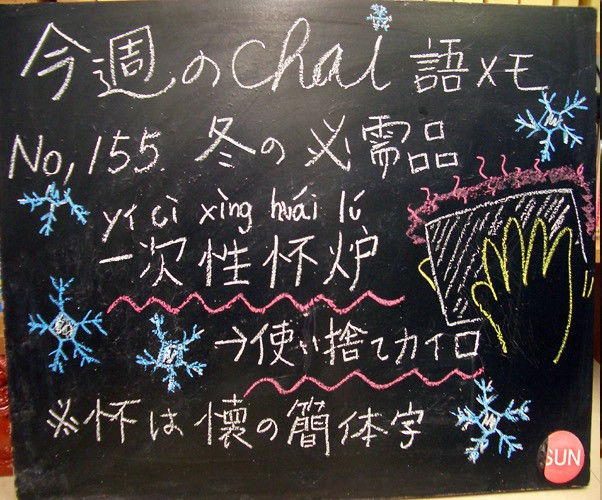 今週のchai語メモ
No,155. 冬の必需品
yī cì xìng huái lú
一次性怀炉
→使い捨てカイロ
※怀は懐の簡体字
SUN